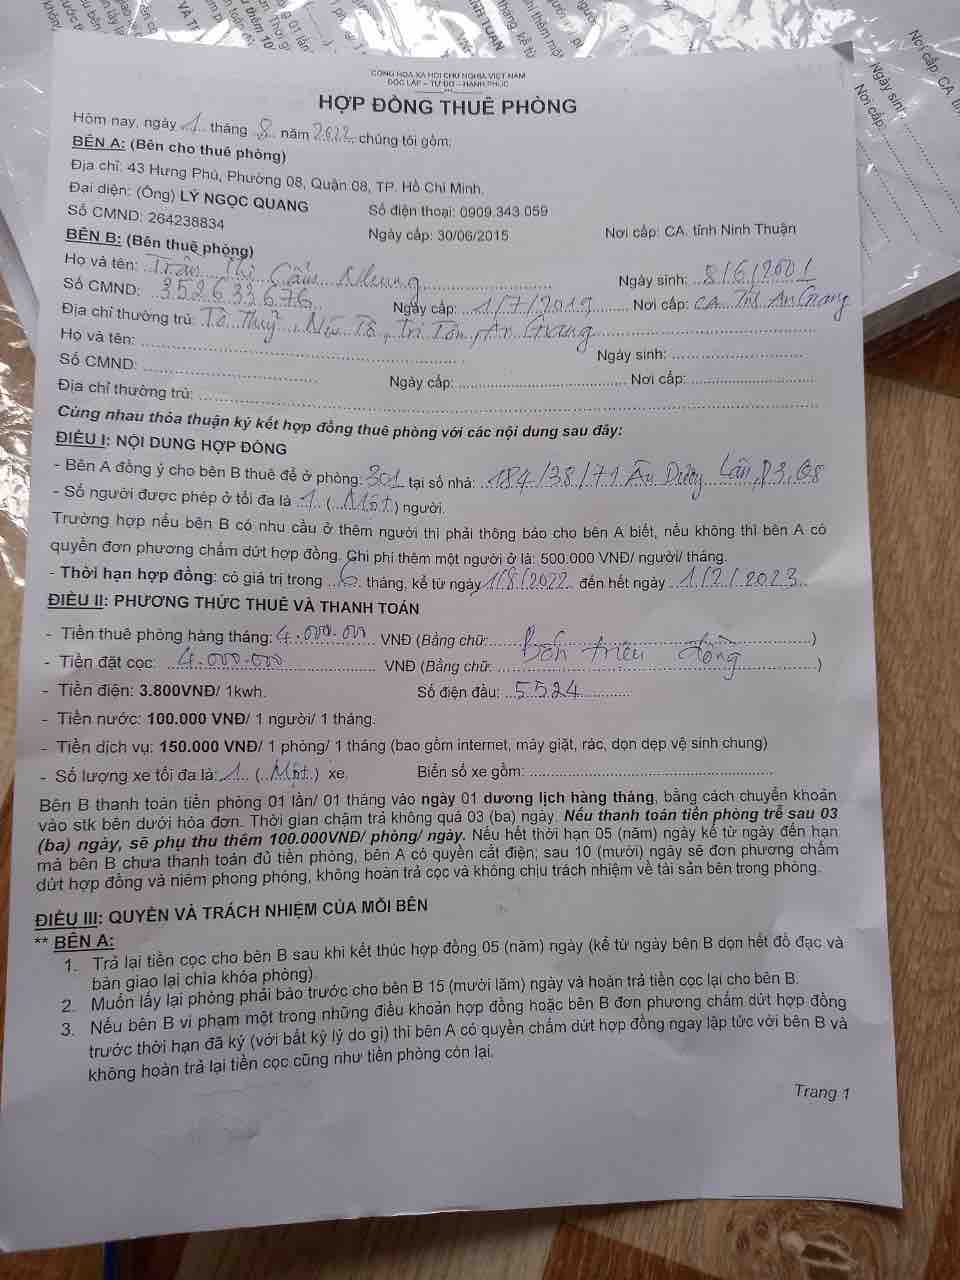 CỘNG HÒA XÃ HỘI CHỦ NGHĨA VIỆT NAM
ĐỘC LẬP – TỰ DO – HẠNH PHÚC
HỢP ĐỒNG THUÊ PHÒNG
Hôm nay, ngày 1 tháng 8 năm 2022 chúng tôi gồm:
BÊN A: (Bên cho thuê phòng)
Địa chỉ: 43 Hưng Phú, Phường 08, Quận 08, TP. Hồ Chí Minh.
Đại diện: (Ông) LÝ NGỌC QUANG Số điện thoại: 0909 343 059
Số CMND: 264238834 Ngày cấp: 30/06/2015 Nơi cấp: CA. tỉnh Ninh Thuận
BÊN B: (Bên thuê phòng)
Họ và tên: Trần Thị Cẩm Nhung Ngày sinh: 8/6/2001
Số CMND: 352633676 Ngày cấp: 1/7/2019 Nơi cấp: CA. Tỉnh An Giang
Địa chỉ thường trú: Tô Thuỷ, Núi Tô, Tri Tôn, An Giang
Họ và tên: Ngày sinh:
Số CMND: Ngày cấp: Nơi cấp:
Địa chỉ thường trú:
Cùng nhau thỏa thuận ký kết hợp đồng thuê phòng với các nội dung sau đây:
ĐIỀU I: NỘI DUNG HỢP ĐỒNG
- Bên A đồng ý cho bên B thuê để ở phòng: 301 tại số nhà: 184/38/71 Âu Dương Lân, P3, Q8
- Số người được phép ở tối đa là 1 (Một) người.
Trường hợp nếu bên B có nhu cầu ở thêm người thì phải thông báo cho bên A biết, nếu không thì bên A có
quyền đơn phương chấm dứt hợp đồng. Chi phí thêm một người ở là: 500.000 VNĐ/ người/ tháng.
- Thời hạn hợp đồng: có giá trị trong 6 tháng, kể từ ngày 1/8/2022 đến hết ngày 1/2/2023
ĐIỀU II: PHƯƠNG THỨC THUÊ VÀ THANH TOÁN
- Tiền thuê phòng hàng tháng: 4.000.000 VNĐ (Bằng chữ: Bốn triệu đồng)
- Tiền đặt cọc: 4.000.000 VNĐ (Bằng chữ: )
- Tiền điện: 3.800VNĐ/ 1kwh. Số điện đầu: 5524
- Tiền nước: 100.000 VNĐ/ 1 người/ 1 tháng.
- Tiền dịch vụ: 150.000 VNĐ/ 1 phòng/ 1 tháng (bao gồm internet, máy giặt, rác, dọn dẹp vệ sinh chung)
- Số lượng xe tối đa là: 1 (Một) xe. Biển số xe gồm:
Bên B thanh toán tiền phòng 01 lần/ 01 tháng vào ngày 01 dương lịch hàng tháng, bằng cách chuyển khoản
vào stk bên dưới hóa đơn. Thời gian chậm trả không quá 03 (ba) ngày. Nếu thanh toán tiền phòng trễ sau 03
(ba) ngày, sẽ phụ thu thêm 100.000VNĐ/ phòng/ ngày. Nếu hết thời hạn 05 (năm) ngày kể từ ngày đến hạn
mà bên B chưa thanh toán đủ tiền phòng, bên A có quyền cắt điện; sau 10 (mười) ngày sẽ đơn phương chấm
dứt hợp đồng và niêm phong phòng, không hoàn trả cọc và không chịu trách nhiệm về tài sản bên trong phòng.
ĐIỀU III: QUYỀN VÀ TRÁCH NHIỆM CỦA MỖI BÊN
** BÊN A:
1. Trả lại tiền cọc cho bên B sau khi kết thúc hợp đồng 05 (năm) ngày (kể từ ngày bên B dọn hết đồ đạc và
bàn giao lại chìa khóa phòng).
2. Muốn lấy lại phòng phải báo trước cho bên B 15 (mười lăm) ngày và hoàn trả tiền cọc lại cho bên B.
3. Nếu bên B vi phạm một trong những điều khoản hợp đồng hoặc bên B đơn phương chấm dứt hợp đồng
trước thời hạn đã ký (với bất kỳ lý do gì) thì bên A có quyền chấm dứt hợp đồng ngay lập tức với bên B và
không hoàn trả lại tiền cọc cũng như tiền phòng còn lại.
Trang 1
Nơi cấp: CA.
Ngày sinh:
Nơi cấp: